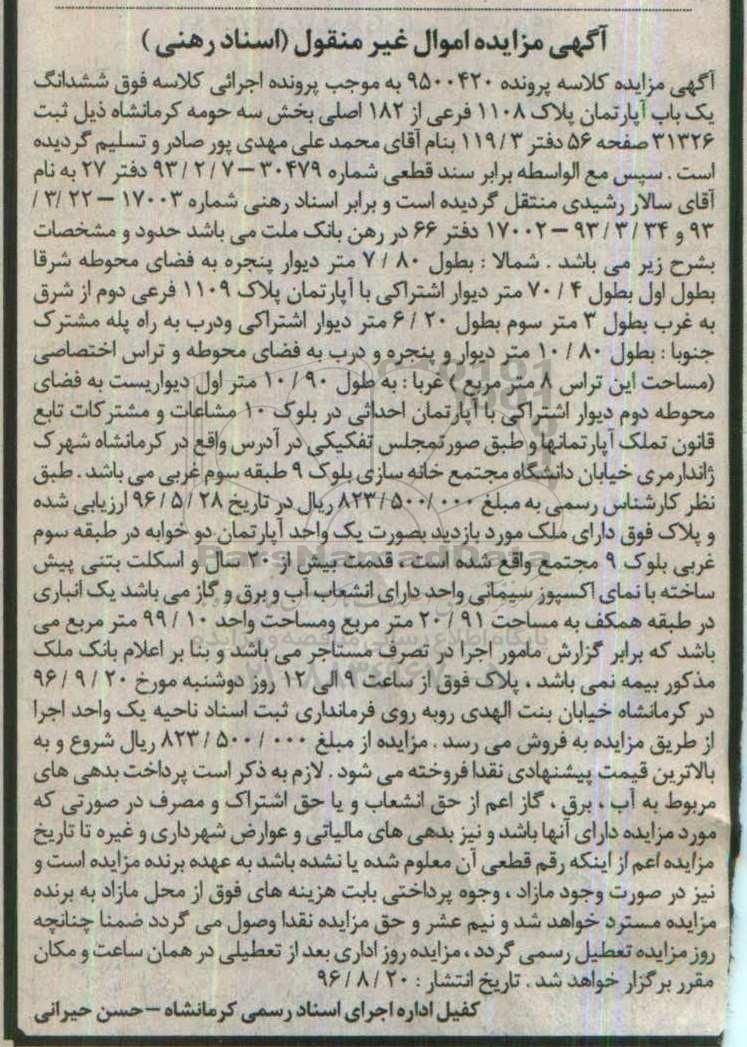 آگهی مزایده اموال غیر منقول (اسناد رهنی)
آگهی مزایده کلاسه پرونده ۹۵۰۰۴۲۰ به موجب پرونده اجرائی کلاسه فوق ششدانگ
یک باب آپارتمان پلاک ۱۱۰۸ فرعی از ۱۸۲ اصلی بخش سه حومه کرمانشاه ذیل ثبت
۳۱۳۲۶ صفحه ۵۶ دفتر ۱۱۹/۳ بنام آقای محمد علی مهدی پور صادر و تسلیم گردیده
است . سپس مع الواسطه برابر سند قطعی شماره ۳۰۴۷۹ – ۹۳/۲/۷ دفتر ۲۷ به نام
آقای سالار رشیدی منتقل گردیده است و برابر اسناد رهنی شماره ۱۷۰۰۳ – ۳/۲۲/
۹۳ و ۹۳/۳/۳۴ – ۱۷۰۰۲ دفتر ۶۶ در رهن بانک ملت می باشد حدود و مشخصات
بشرح زیر می باشد . شمالا : بطول ۷/۸۰ متر دیوار پنجره به فضای محوطه شرقا
بطول اول بطول ۷۰/۴ متر دیوار اشتراکی با آپارتمان پلاک ۱۱۰۹ فرعی دوم از شرق
به غرب بطول ۳ متر سوم بطول ۶/۲۰ متر دیوار اشتراکی ودرب به راه پله مشترک
جنوبا : بطول ۱۰/۸۰ متر دیوار و پنجره و درب به فضای محوطه و تراس اختصاصی
(مساحت این تراس ۸ متر مربع ) غربا : به طول ۱۰/۹۰ متر اول دیواریست به فضای
محوطه دوم دیوار اشتراکی با آپارتمان احداثی در بلوک ۱۰ مشاعات و مشترکات تابع
قانون تملک آپارتمانها و طبق صورتمجلس تفکیکی در آدرس واقع در کرمانشاه شهرک
ژاندارمری خیابان دانشگاه مجتمع خانه سازی بلوک ۹ طبقه سوم غربی می باشد . طبق
نظر کارشناس رسمی به مبلغ ۸۲۳/۵۰۰/۰۰۰ ریال در تاریخ ۹۶/۵/۲۸ ارزیابی شده
و پلاک فوق دارای ملک مورد بازدید بصورت یک واحد آپارتمان دو خوابه در طبقه سوم
غربی بلوک ۹ مجتمع واقع شده است ، قدمت بیش از ۲۰ سال و اسکلت بتنی پیش
ساخته با نمای اکسپوز سیمانی واحد دارای انشعاب آب و برق و گاز می باشد یک انباری
در طبقه همکف به مساحت ۲۰/۹۱ متر مربع ومساحت واحد ۹۹/۱۰ متر مربع می
باشد که برابر گزارش مامور اجرا در تصرف مستاجر می باشد و بنا بر اعلام بانک ملک
مذکور بیمه نمی باشد ، پلاک فوق از ساعت ۹ الی ۱۲ روز دوشنبه مورخ ۹۶/۹/۲۰
در کرمانشاه خیابان بنت الهدی روبه روی فرمانداری ثبت اسناد ناحیه یک واحد اجرا
از طریق مزایده به فروش می رسد . مزایده از مبلغ ۸۲۳/۵۰۰/۰۰۰ ریال شروع و به
بالاترین قیمت پیشنهادی نقدا فروخته می شود . لازم به ذکر است پرداخت بدهی های
مربوط به آب ، برق ، گاز اعم از حق انشعاب و یا حق اشتراک و مصرف در صورتی که
مورد مزایده دارای آنها باشد و نیز بدهی های مالیاتی و عوارض شهرداری و غیره تا تاریخ
مزایده اعم از اینکه رقم قطعی آن معلوم شده یا نشده باشد به عهده برنده مزایده است و
نیز در صورت وجود مازاد ، وجوه پرداختی بابت هزینه های فوق از محل مازاد به برنده
مزایده مسترد خواهد شد و نیم عشر و حق مزایده نقدا وصول می گردد ضمنا چنانچه
روز مزایده تعطیل رسمی گردد ، مزایده روز اداری بعد از تعطیلی در همان ساعت و مکان
مقرر برگزار خواهد شد . تاریخ انتشار : ۹۶/۸/۲۰
کفیل اداره اجرای اسناد رسمی کرمانشاه – حسن حیرانی
ParsNamadData